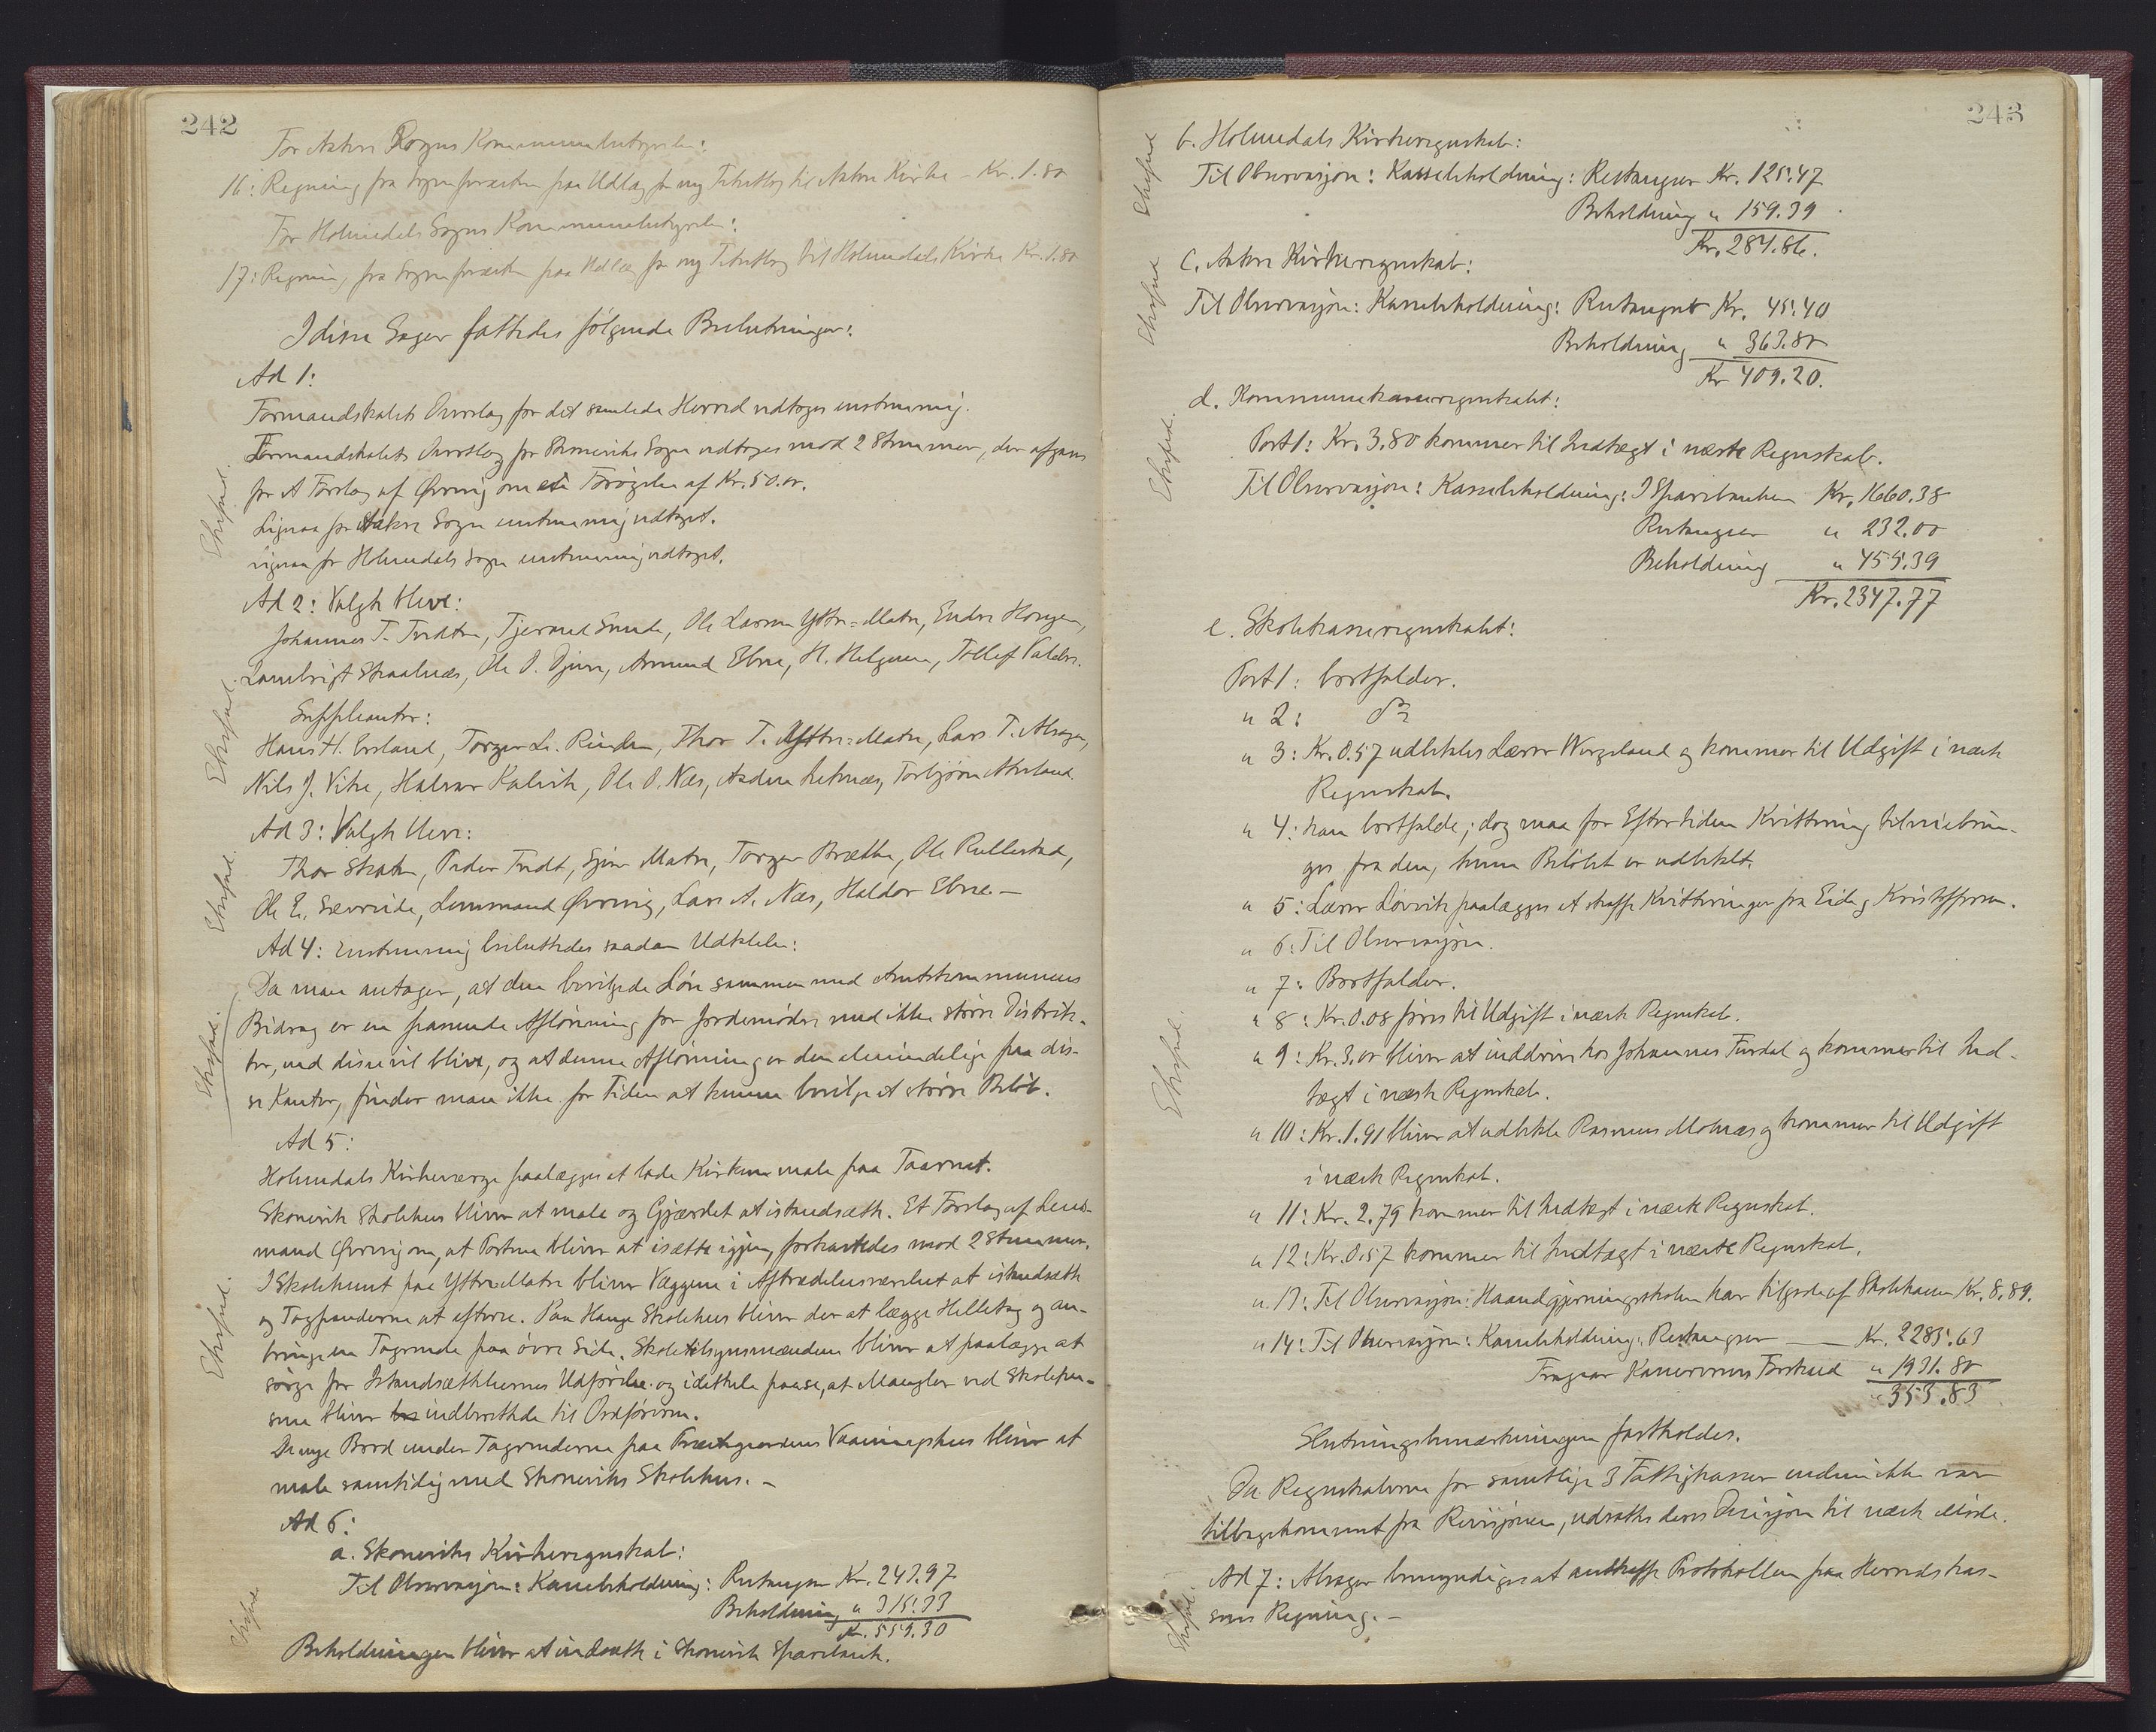 242
For Aakre Sogns Kommunebestyrelse:
16: Regning fra Sogneforsætten paa Udlæg for ny Textbog til Aakre Kirke - Kr. 1.80
For Holmedals Sogns Kommunebestyrelse:
17: Regning fra paa Udlæg for ny Textbog til Holmedals Kirke Kr. 1.80
I disse Sager fattedes følgende Beslutninger:
Ad 1:
Formandskabets Overslag for det samlede Herred vedtoges enstemmig.
Formandskabets Overslag for Skonevik Sogn vedtoges mod 2 Stemmer, der afgaves
for et Forslag af Øvrevig om en Forøgelse af Kr. 50.00.
Ligesaa for Aakre Sogn enstemmig vedtaget.
Ligesaa for Holmedals Sogn enstemmig vedtaget.
Ehrsfred.
Ad 2: Valgte bleve:
Johannes T. Tvedten, Tjerand Smede, Ole Larsen Yttre-Matre, Endre Haugen,
Lambrigt Skaalnæs, Ole O. Djuve, Amund Ebne, H. Helgesen, Tollef Valdre.
Suppleanter:
Hans H. Ersland, Torger L. Rinden, Thor T. Yttre-Matre, Lars T. Alsager,
Nils J. Vike, Halvor Kalvik, Ole O. Næs, Torbjørn Akerland.
Ad 3: Valgte bleve:
Thor Skaten, Peder Tvedt, Matre, Torger Brætte, Ole Rullestad,
Ole E. Sævreide, Lensmand Øvrevig, Lars A. Næs, Haldor Ebne. -
Ad 4: Enstemmig besluttedes saadan Udtalelse:
Da man antager, at den bevilgede Løn sammen med Amtskommunens
Bidrag er en passende Aflønning for Jordemødre med ikke større Distrik-
ter, end disse vil blive, og at denne Aflønning er den almindelige paa dis-
se Kanter, finder man ikke for Tiden at kunne bevilge et større Beløb.
Ad 5:
Holmedals Kirkeværge paalægges at lade Kirken male paa Taarnet.
Skonevik Skolehus bliver at male og Gjærdet at istandsætte. Et Forslag af Lens-
mand Øvrevig om, at Portene bliver at isætte igjen, forkastedes mod 2 Stemmer.
I Skolehuset paa Yttre Matre bliver Væggene i Aftrædelsesværelset at istandsætte
og Tagpanderne at efterse. Paa Hauge Skolehus bliver der at lægge Helletag og an-
bringe en Tagrende paa øvre Side. Skoletilsynsmændene bliver at paalægge at
sørge for Istandsættelsernes Udførelse og idethele paase, at Mangler ved Skolehu-
sene bliver indberettede til Ordføreren.
De nye Bord under Tagrenderne paa Præstegaardens Vaaningshus bliver at
male samtidig med Skoneviks Skolehus. -
Ad 6:
a. Skoneviks Kirkeregnskab:
Til Observasjon: Kassebeholdning: Restanser Kr. 243.97
Beholdning " 315.33
Kr. 559.30
Beholdningen bliver at indsætte i Skonevik Sparebank.
243
b. Holmedals Kirkeregnskab:
Til Observasjon: Kassebeholdning: Restanser Kr. 125.47
Beholdning " 159.39
Kr. 284.86.
c. Aakre Kirkeregnskab:
Til Observasjon: Kassebeholdning: Restanser Kr. 45.40
Beholdning " 363.80
Kr 409.20.
d. Kommunekasseregnskabet:
Post 1: Kr. 3.80 kommer til Indtægt i næste Regnskab.
Til Observasjon: Kassebeholdning: I Sparebanken Kr. 1660.38
Restanser " 232.00
Beholdning " 455.39
Kr. 2347.77
e. Skolekasseregnskabet:
Post 1: bortfalder.
" 2: do
" 3: Kr. 0.57 udbetales Lærer Wergeland og kommer til Udgift i næste
Regnskab.
" 4: kan bortfalde; dog maa for Eftertiden Kvittering tilveiebrin-
ges fra den, hvem Beløbet er udbetalt.
" 5: Lærer Løvvik paalægges at skaffe Kvitteringer fra Eide og Kristoffersen.
" 6: Til Observasjon.
" 7: Bortfalder.
" 8: Kr. 0.08 føres til Udgift i næste Regnskab.
" 9: Kr. 3.00 bliver at inddrive hos Johannes Fuvdal og kommer til Ind-
tægt i næste Regnskab.
" 10: Kr. 1.91 bliver at udbetale Rasmus Molnæs og kommer til Udgift
i næste Regnskab.
" 11: Kr. 2.79 kommer til Indtægt i næste Regnskab.
" 12: Kr. 0.57 kommer til Indtægt i næste Regnskab.
" 13: Til Observasjon: Haandgjerningsskolen har tilgode af Skolekassen Kr. 8.89.
" 14: Til Observasjon: Kassebeholdning: Restanser — Kr. 2285.63
Fragaar Kassererens Forskud " 1931.80
" 353.83
Slutningsbemærkningen fastholdes.
Da Regnskaberne for samtlige 3 Fattigkasser endnu ikke var
tilbagekommet fra Revisjonen, udsattes deres Decisjon til næste Møde.
Ad 7: Alsager bemyndiges at anskaffe Protokollen paa Herredskas-
sens Regning. -